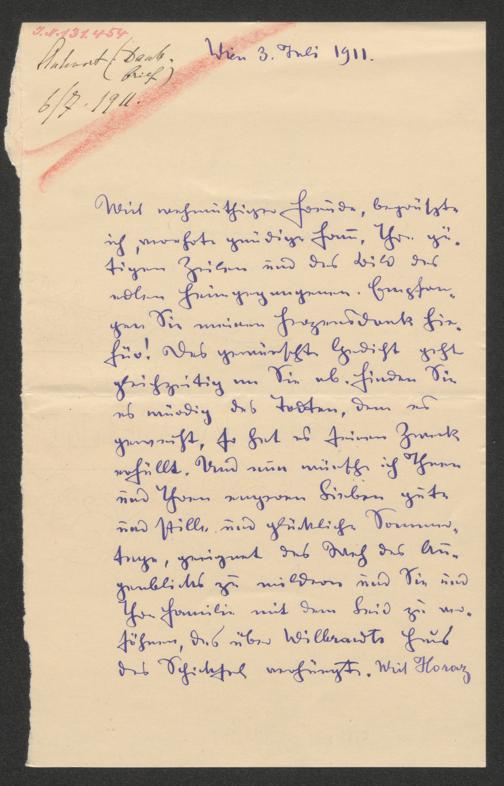 I.N.131.454
Antwort (Dank-
brief)
6/7. 1911.
Wien 3. Juli 1911.
Mit wehmüthiger Freude, begrüßte
ich, verehrte gnädige Frau, Ihre gü-
tigen Zeilen und das Bild des
edlen Heimgegangenen. Empfan-
gen Sie meinen Herzensdank hie-
für! Das gewünschte Gedicht geht
gleichzeitig an Sie ab. Finden Sie
es würdig des Todten, dem es
geweiht, so hat es seinen Zweck
erfüllt. Und nun wünsche ich Ihnen
und Ihren engeren Lieben gute
und stille und glückliche Sommer-
tage, geeignet das Weh des Au-
genblicks zu mildern und Sie und
Ihre Familie mit dem Leid zu ver-
söhnen, das über Wilbrandts Haus
das Schicksal verhängte. Mit Horaz